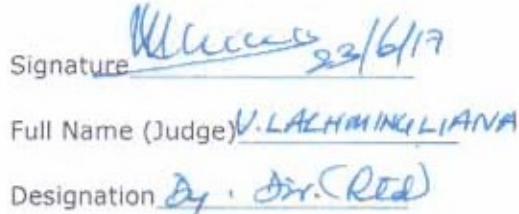 Signature 23/6/17
Full Name (Judge) V. LALHMINGLIANA
Designation Dy. Dir. (Rtd)